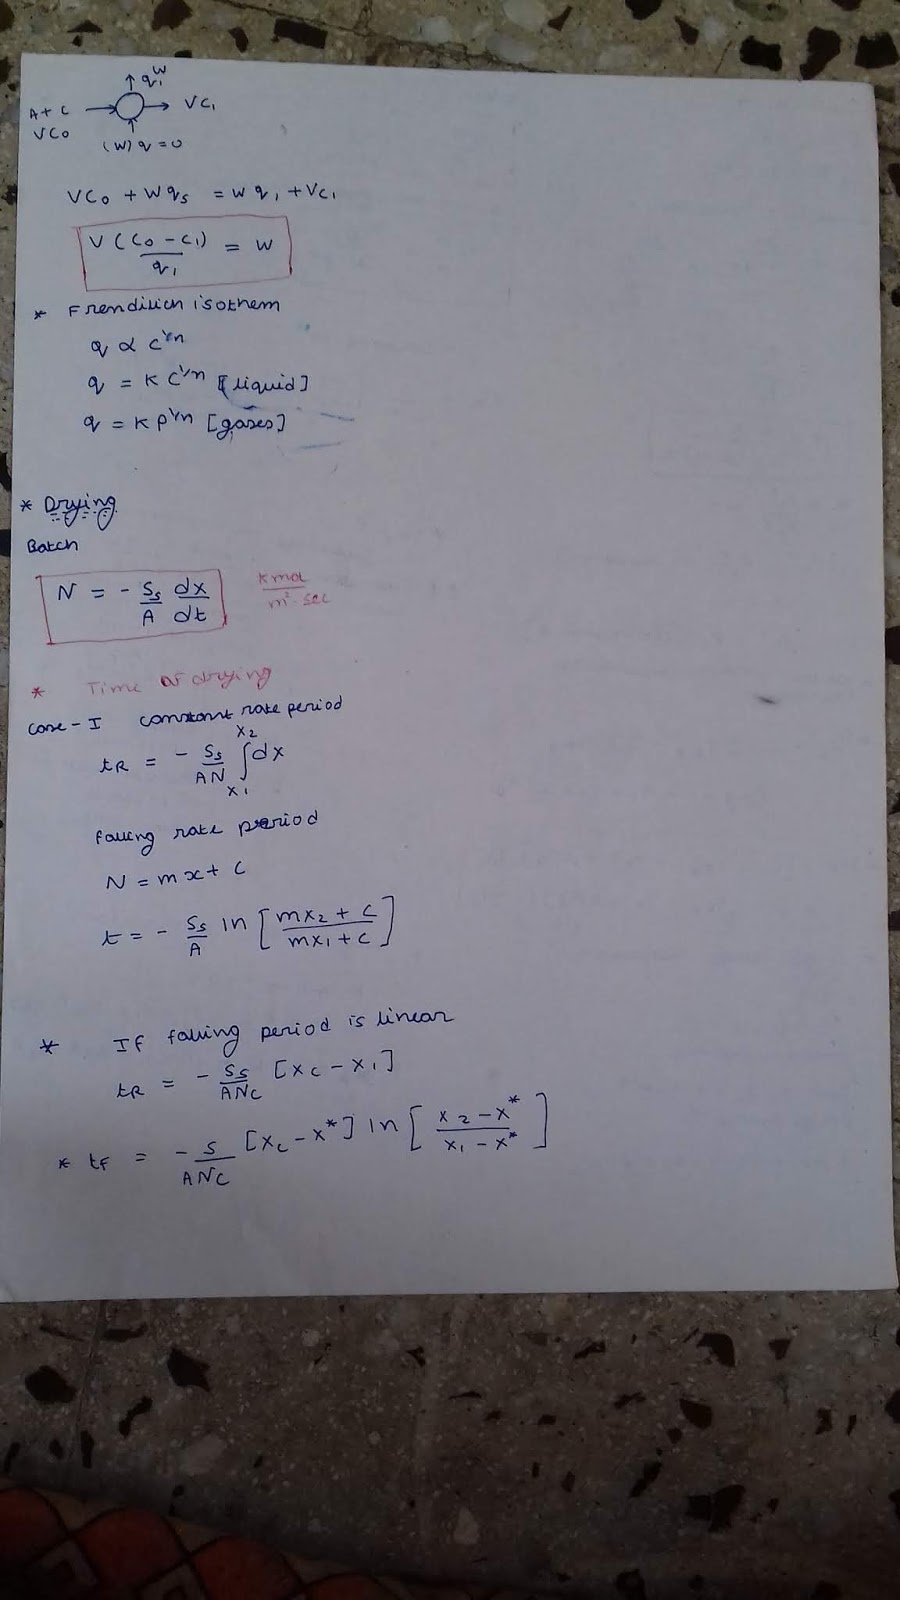 ↑ q₁ W
A + C → ◯ → VC₁
VC₀
(W) q = 0
VC₀ + W qₛ = W q₁ + VC₁
V (C₀ - C₁) / q₁ = W
* Frendilich isothem
q ∝ C^1/n
q = K C^1/n [liquid]
q = K P^1/n [gases]
* Drying
Batch
N = - Sₛ/A dx/dt   kmol / m² · sec
* Time of drying
Case - I constant rate period
tR = - Sₛ/AN ∫_{x₁}^{x₂} dx
falling rate period
N = mx + c
t = - Sₛ/A ln [ mx₂ + c / mx₁ + c ]
* If falling period is linear
tR = - Sₛ/ANc [xc - x₁]
* tF = - S/ANC [xc - x*] ln [ x₂ - x* / x₁ - x* ]